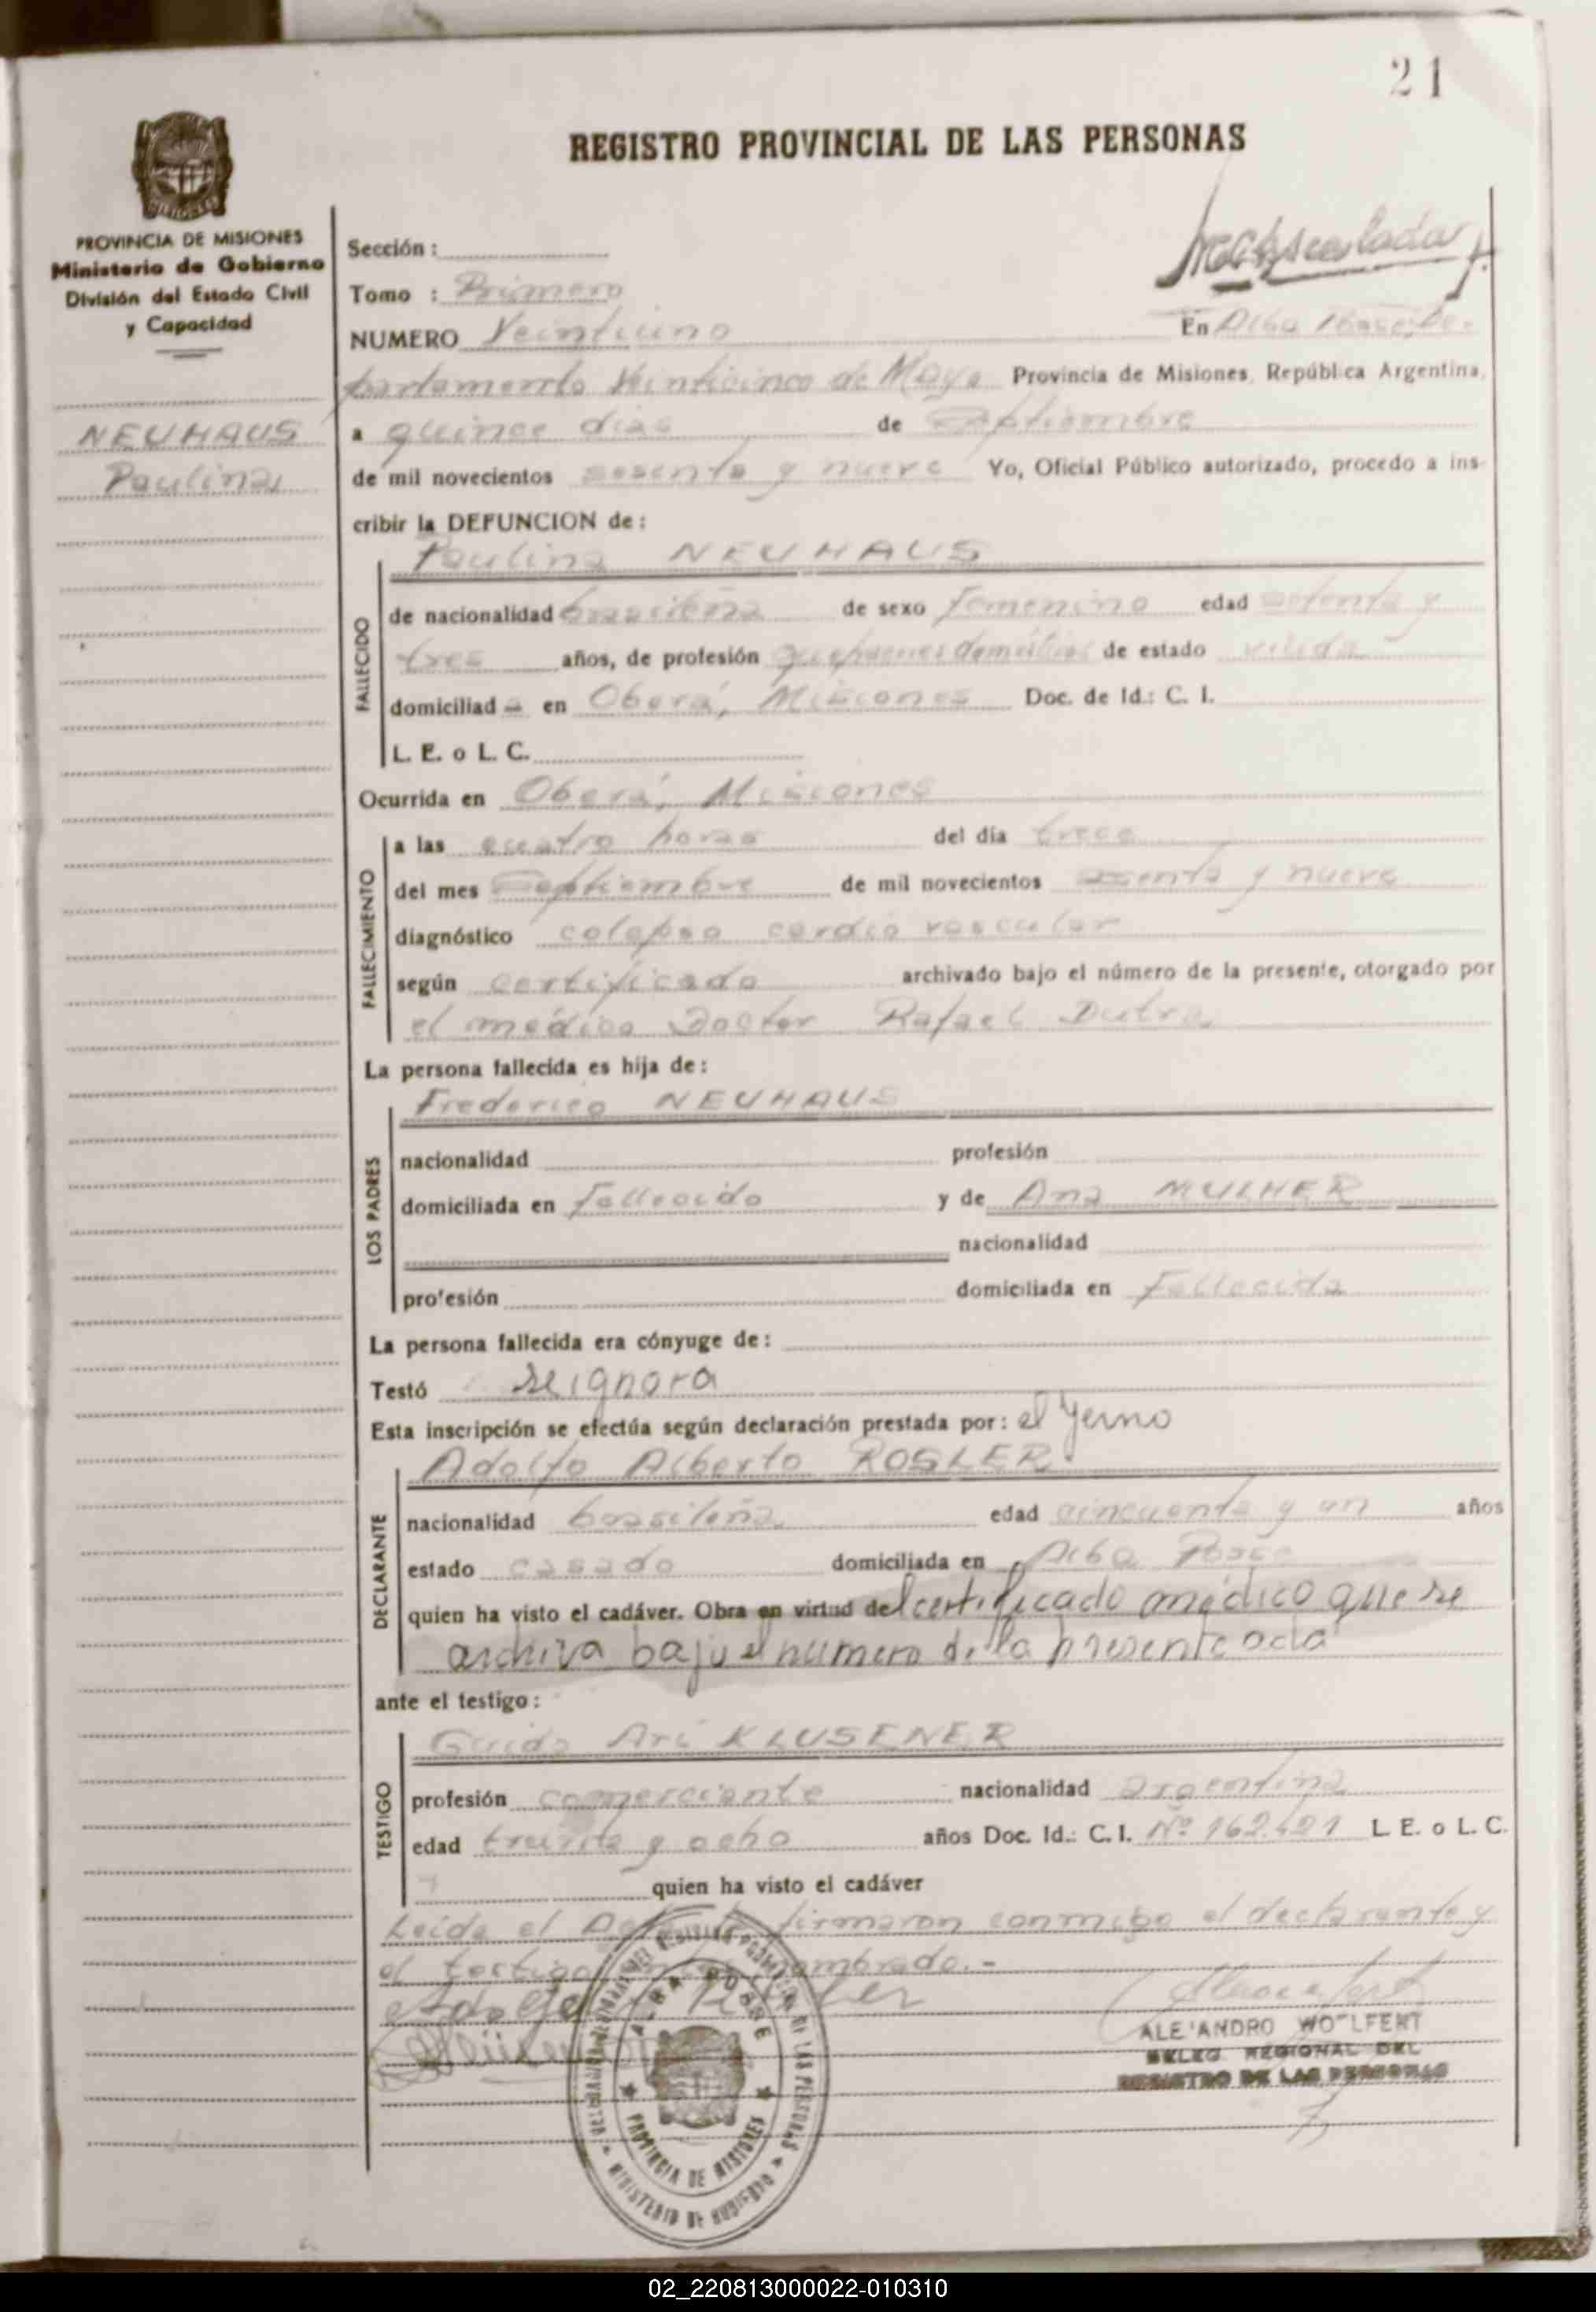 21
REGISTRO PROVINCIAL DE LAS PERSONAS
MISIONES
PROVINCIA DE MISIONES
Ministerio de Gobierno
División del Estado Civil
y Capacidad
NEUHAUS
Paulina
Sección :
Tomo : Primero
NUMERO Veintiuno En Alba Posse, De-
partamento Veinticinco de Mayo Provincia de Misiones, República Argentina,
a quince dias de Septiembre
de mil novecientos sesenta y nueve Yo, Oficial Público autorizado, procedo a ins-
cribir la DEFUNCION de :
Paulina NEUHAUS
FALLECIDO
de nacionalidad brasileña de sexo Femenino edad setenta y
tres años, de profesión quehaceres domésticos de estado viuda
domiciliad a en Oberá, Misiones Doc. de Id.: C. I.
L. E. o L. C.
Ocurrida en Oberá, Misiones
FALLECIMIENTO
a las cuatro horas del día trece
del mes Septiembre de mil novecientos sesenta y nueve
diagnóstico colapso cardio vascular
según certificado archivado bajo el número de la presente, otorgado por
el médico Doctor Rafael Dutra
La persona fallecida es hija de :
Frederico NEUHAUS
LOS PADRES
nacionalidad profesión
domiciliada en fallecido y de Ana MULHER
nacionalidad
profesión domiciliada en Fallecida
La persona fallecida era cónyuge de :
Testó se ignora
Esta inscripción se efectúa según declaración prestada por : el Yerno
Adolfo Alberto ROSLER
DECLARANTE
nacionalidad brasileña edad cincuenta y un años
estado casado domiciliada en Alba Posse
quien ha visto el cadáver. Obra en virtud del certificado médico que se
archiva bajo el numero de la presente acta
ante el testigo :
Guido Ari KLUSENER
TESTIGO
profesión comerciante nacionalidad argentina
edad treinta y ocho años Doc. Id.: C. I. Nº L E. o L. C.
quien ha visto el cadáver
Leida el firmaron conmigo el declarante y
el testigo nombrado.-
ALBA POSSE
PROVINCIA DE MISIONES
MINISTERIO DE GOBIERNO
ALEJANDRO WOLFERT
DELEG. REGIONAL DEL
REGISTRO DE LAS PERSONAS
02_220813000022-010310